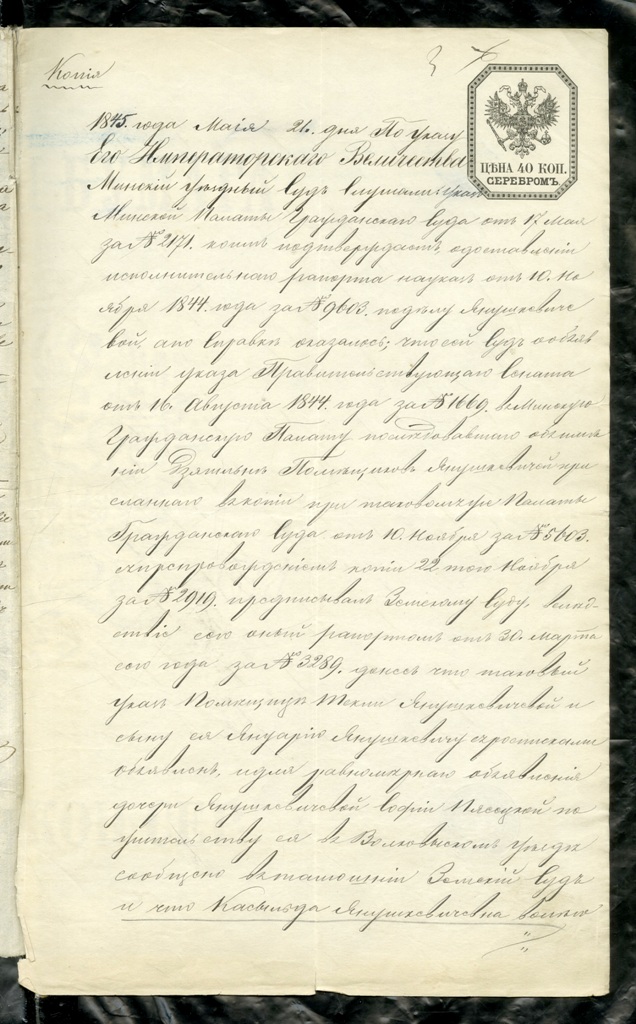 Копія
ЦѢНА 40 КОП.
СЕРЕБРОМЪ.
1845. года Маія 26. дня По указу
Его Императорскаго Величества
Минскій Уѣздный Судъ Слушали указъ
Минской Палаты Гражданскаго Суда отъ 17 Мая
за № 2171. коимъ подтверждаетъ о доставленіи
исполнительнаго рапорта на указъ отъ 10. Но
ября 1844. года за № 9603. по дѣлу Янушкевиче
вой, а по Справкѣ оказалось; что сей Судъ о объяв
леніи указа Правительствующаго Сената
отъ 16. Августа 1844. года за № 1669. въ Минскую
Гражданскую Палату послѣдовавшаго
Помѣщиковъ Янушкевичей при
сланнаго въ копіи при таковомъ же Палаты
Гражданскаго Суда отъ 10. Ноября за № 5603.
съ препровожденіемъ копіи 22 того Ноября
за № 2919. предписывалъ Земскому Суду, вслѣд
ствіе сего оный рапортомъ отъ 30. Марта
сего года за № 3289. донесъ что таковый
указъ Помѣщицѣ Текли Янушкевичевой и
сыну ея Януарію Янушкевичу съ росписками
объявленъ, и для равномѣрнаго объявленія
дочери Янушкевичевой Софіи Пясецкой по
жительству ея въ Волковыскомъ Уѣздѣ
сообщено въ тамошній Земскій Судъ
и что Касильда Янушкевичевна